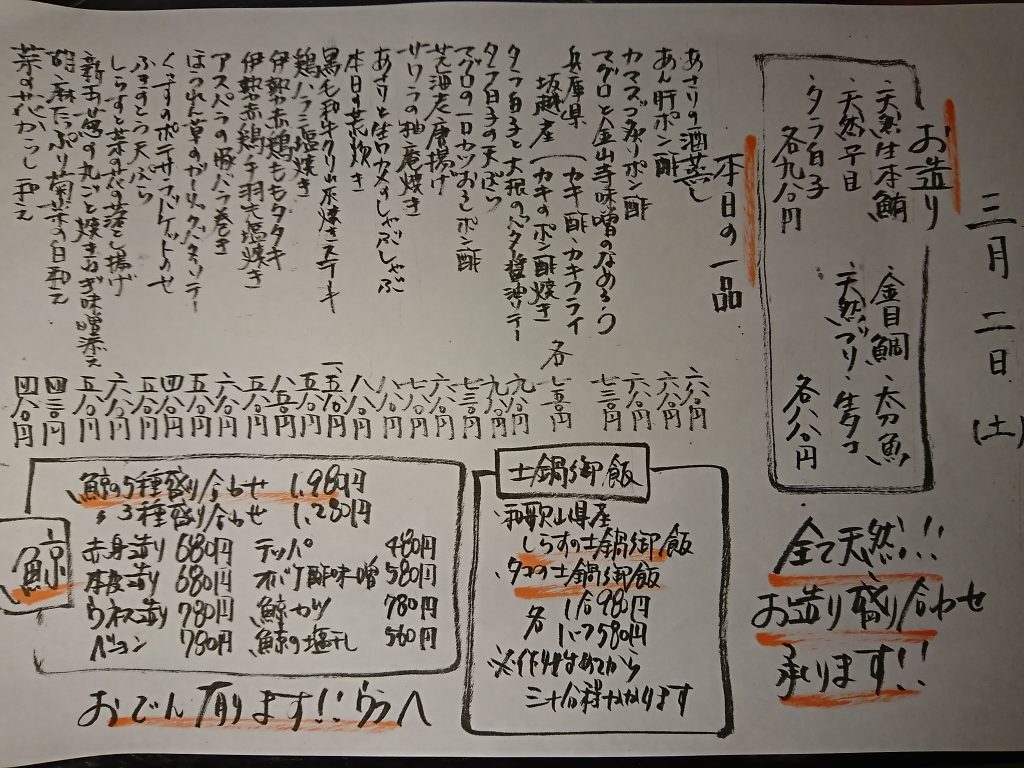 三月二日(土)
お造り
天然生本鮪 金目鯛 太刀魚
天然平目 天然ブリ 生タコ
タラ白子
各九八〇円 各八八〇円
全て天然!!
お造り盛り合わせ
承ります!!
本日の一品
あさりの酒蒸し 六八〇円
あん肝ポン酢 六八〇円
カマスゴ炙りポン酢 六八〇円
マグロと金山寺味噌のなめろう 七三〇円
兵庫県
坂越産
(カキ酢、カキフライ
(カキのポン酢焼き
各 七五〇円
タラ白子と大根のバター醤油ソテー 九八〇円
タラ白子の天ぷら 九八〇円
マグロの一口カツおろしポン酢 七三〇円
唐揚げ 六八〇円
サワラの柚庵焼き 七八〇円
あさりと生ワカメのしゃぶしゃぶ 八八〇円
本日の荒炊き 八八〇円
黒毛和牛クリ 焼きステーキ 一、五八〇円
鶏ハラミ塩焼き 五八〇円
伊勢赤鶏ももタタキ 八五〇円
伊勢赤鶏手羽元塩焼き 五八〇円
アスパラの豚バラ巻き 六八〇円
ほうれん草のガーリックバターソテー 五八〇円
くさすのポテサラバケットのせ 四八〇円
ふきのとう天ぷら 五八〇円
しらすと菜の花の落し揚げ 六八〇円
新玉葱の丸ごと焼きねぎ味噌添え 五八〇円
胡麻たっぷり菊菜の白和え 四三〇円
菜の花からし和え 四八〇円
土鍋御飯
・和歌山県産
しらすの土鍋御飯
・タコの土鍋御飯
各
1合980円
1.5 1580円
※作り始めてから
三十分程かかります
鯨
鯨の5種盛り合わせ 1,980円
〃 3種盛り合わせ 1,280円
赤身造り 680円 テッパ 480円
本皮造り 680円 オバケ酢味噌 580円
ウネス造り 780円 鯨カツ 780円
ベーコン 780円 鯨の塩干し 560円
おでん有ります!!ウラへ